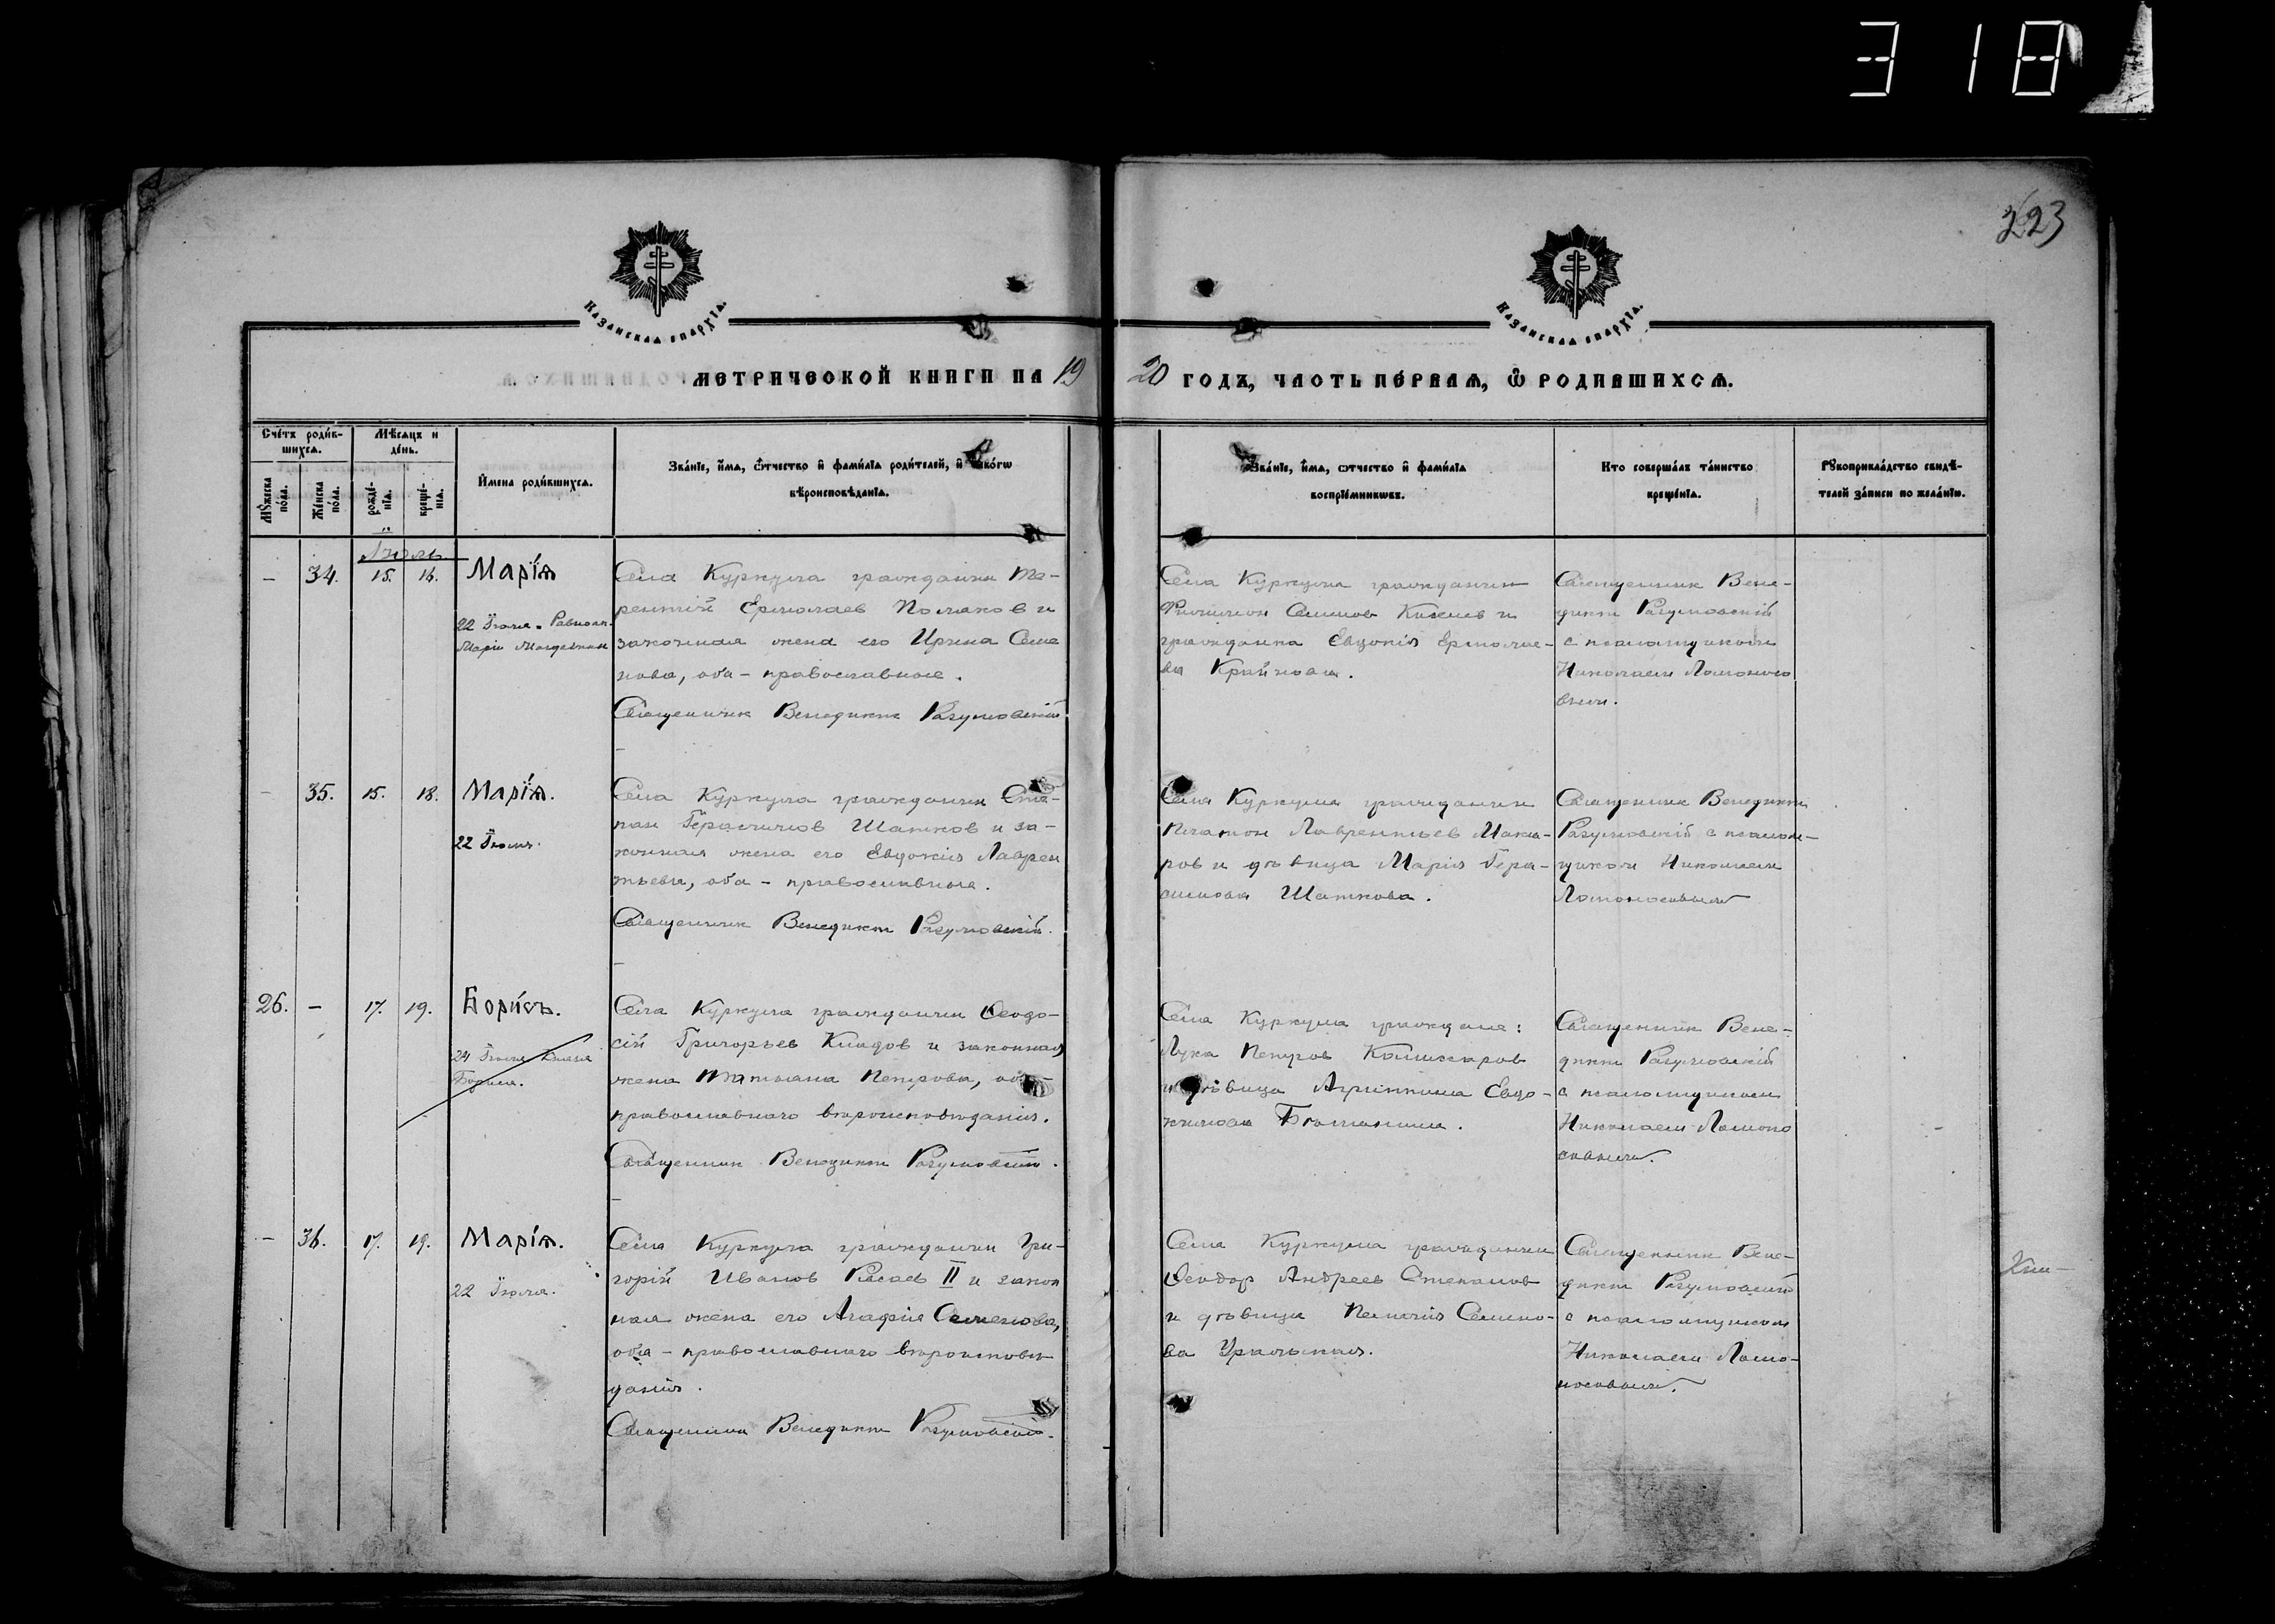 318
223
КАЗАНСКАЯ ЕПАРХІЯ.
КАЗАНСКАЯ ЕПАРХІЯ.
МЕТРИЧЕСКОЙ КНИГИ НА 1920 ГОДЪ, ЧАСТЬ ПЕ́РВАЯ, Ѽ РОДИВШИХСЯ.
Сче́тъ роди́в-
шихся.
Мѣ́сяцъ и
де́нь.
Мꙋ́жеска по́ла.
Же́нска по́ла.
рожде́-
нїѧ.
креще́-
нїѧ.
И́мена роди́вшихсѧ.
Зва́нїе, и́мѧ, ѻ҆́тчество и҆ фами́лїѧ роди́телей, и҆ како́гѡ
вѣроисповѣ́данїѧ.
Зва́нїе, и́мѧ, ѻ҆́тчество и҆ фами́лїѧ
воспрїе́мникѡвъ.
Кто соверша́лъ та́инство
креще́нїѧ.
Рꙋкоприкла́дство свидѣ́-
телей за́писи по жела́нїю.
Іюль
– 34. 15. 16. Марі́я
22 Іюля. Равноап.
Маріи Магдалины
Села Куркуля гражданин Те-
рентій Ермолаев Поляков и
законная жена его Ирина Семе
нова, оба – православные.
Священник Венедикт Разумовскій
Села Куркуля гражданин
Филимон Семенов и
гражданка Евдокія Ермолае-
ва Крайнова.
Священник Вене-
дикт Разумовскій
с псаломщиком
Николаем Ломоносо
вым.
– 35. 15. 18. Марі́я.
22 Іюля.
Села Куркуля гражданин Сте-
пан Герасимов Шатков и за-
конная жена его Евдокія Лаврен
тьева, оба – православные.
Священник Венедикт Разумовскій.
Села Куркуля гражданин
Платон Лаврентьев Мака-
ров и дѣвица Марія Гера-
симова Шаткова.
Священник Венедикт
Разумовскій с псалом-
щиком Николаем
Ломоносовым
26. – 17. 19. Бори́съ.
24 Іюля Князя
Бориса.
Села Куркуля гражданин Ѳеодо-
сій Григорьев Кладов и законная
жена Татьяна Петрова, оба
православнаго вѣроисповѣданія.
Священник Венедикт Разумовскій.
Села Куркуля граждане:
Лука Петров Комиссаров
и дѣвица Агриппина Евдо-
кимова
Священник Вене-
дикт Разумовскій
с псаломщиком
Николаем Ломоно
совым.
– 36. 17. 19. Марі́я.
22 Іюля.
Села Куркуля гражданин Гри-
горій Иванов II и закон
ная жена его Агафія Семенова,
оба – православнаго вѣроисповѣ-
данія.
Священник Венедикт Разумовскій.
Села Куркуля гражданин
Ѳеодор Андреев Степанов
и дѣвица Семено-
ва Уральская.
Священник Вене-
дикт Разумовскій
с псаломщиком
Николаем Ломо-
носовым.